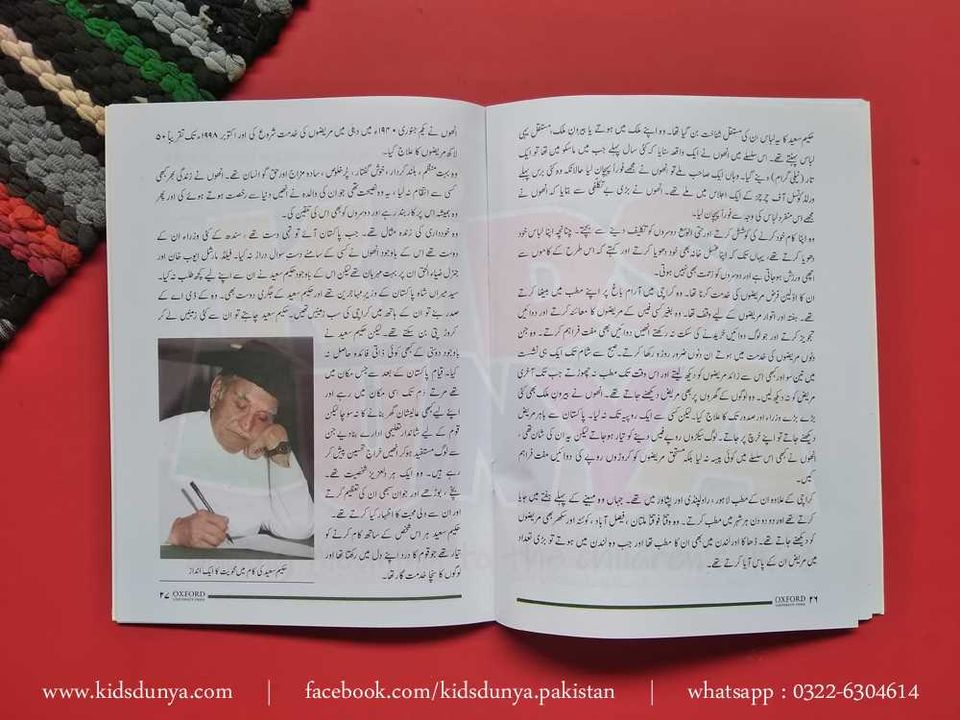 حکیم سعید کا یہ لباس ان کی مستقل شناخت بن گیا تھا۔ وہ اپنے ملک میں ہوتے یا بیرونِ ملک، مستقل یہی
لباس پہنتے تھے۔ اس سلسلے میں انھوں نے ایک واقعہ سنایا کہ کئی سال پہلے جب میں ماسکو میں تھا تو ایک
تار (ٹیلی گرام) دینے گیا۔ وہاں ایک صاحب ملے تو انھوں نے مجھے فوراً پہچان لیا حالانکہ وہ کئی برس پہلے
ورلڈ کونسل آف چرچز کے ایک اجلاس میں ملے تھے۔ انھوں نے بڑی بے تکلفی سے بتایا کہ انھوں نے
مجھے اس منفرد لباس کی وجہ سے فوراً پہچان لیا۔
وہ اپنا کام خود کرنے کی کوشش کرتے اور حتی الوسع دوسروں کو تکلیف دینے سے بچتے۔ چنانچہ اپنا لباس خود
دھویا کرتے تھے، یہاں تک کہ اپنا غسل خانہ بھی خود دھویا کرتے اور کہتے کہ اس طرح کے کاموں سے
اچھی ورزش ہوجاتی ہے اور دوسروں کو زحمت بھی نہیں ہوتی۔
ان کا اوّلین فرض مریضوں کی خدمت کرنا تھا۔ وہ کراچی میں آرام باغ پر اپنے مطب میں بیٹھا کرتے
تھے۔ ہفتہ اور اتوار مریضوں کے لیے وقف تھا۔ وہ بغیر کسی فیس کے مریضوں کا معائنہ کرتے اور دوائیں
تجویز کرتے اور جو لوگ دوائیں خریدنے کی سکت نہ رکھتے انھیں دوائیں بھی مفت فراہم کرتے۔ وہ جن
دنوں مریضوں کی خدمت میں ہوتے ان دنوں ضرور روزہ رکھا کرتے۔ صبح سے شام تک ایک ہی نشست
میں تین سو اور کبھی اس سے زائد مریضوں کو دیکھ لیتے اور اس وقت تک مطب نہ چھوڑتے جب تک آخری
مریض کو نہ دیکھ لیں۔ وہ لوگوں کے گھروں پر بھی مریض دیکھنے جاتے تھے۔ انھوں نے بیرونِ ملک بھی کئی
بڑے بڑے وزراء اور صدور تک کا علاج کیا۔ لیکن کسی سے ایک روپیہ تک نہ لیا۔ پاکستان سے باہر مریض
دیکھنے جاتے تو اپنے خرچ پر جاتے۔ لوگ سیکڑوں روپے فیس دینے کو تیار ہوجاتے لیکن یہ ان کی شان تھی،
انھوں نے بھی اس سلسلے میں کوئی پیسہ نہ لیا بلکہ مستحق مریضوں کو کروڑوں روپے کی دوائیں مفت فراہم
کیں۔
کراچی کے علاوہ ان کے مطب لاہور، راولپنڈی اور پشاور میں تھے۔ جہاں وہ مہینے کے پہلے ہفتے میں جایا
کرتے تھے اور دو دو دن ہر شہر میں مطب کرتے۔ وہ وقتاً فوقتاً ملتان، فیصل آباد، کوئٹہ اور سکھر بھی مریضوں
کو دیکھنے جاتے تھے۔ ڈھاکا اور لندن میں بھی ان کا مطب تھا اور جب وہ لندن میں ہوتے تو بڑی تعداد
میں مریض ان کے پاس آیا کرتے تھے۔
۲۶ OXFORD
UNIVERSITY PRESS
انھوں نے یکم جنوری ۱۹۴۰ء میں دہلی میں مریضوں کی خدمت شروع کی اور اکتوبر ۱۹۹۸ء تک تقریباً ۵۰
لاکھ مریضوں کا علاج کیا۔
وہ بہت منظم، بلند کردار، خوش گفتار، پُرخلوص، سادہ مزاج اور حق گو انسان تھے۔ انھوں نے زندگی بھر کبھی
کسی سے انتقام نہ لیا، یہ وہ نصیحت تھی جو ان کی والدہ نے انھیں دنیا سے رخصت ہوتے ہوئے کی اور پھر
وہ ہمیشہ اس پر کاربند رہے اور دوسروں کو بھی اس کی تلقین کی۔
وہ خودداری کی زندہ مثال تھے۔ جب پاکستان آئے تو تہی دست تھے، سندھ کے کئی وزراء ان کے
دوست تھے اس کے باوجود انھوں نے کسی کے سامنے دستِ سوال دراز نہ کیا۔ فیلڈ مارشل ایوب خان اور
جنرل ضیاء الحق ان پر بہت مہربان تھے لیکن اس کے باوجود حکیم سعید نے ان سے اپنے لیے کچھ طلب نہ کیا۔
سید میراں شاہ پاکستان کے وزیرِ مہاجرین تھے اور حکیم سعید کے جگری دوست بھی۔ وہ کے ڈی اے کے
صدر بنے تو ان کے ہاتھ میں کراچی کی سب زمینیں تھیں۔ حکیم سعید چاہتے تو ان سے کئی زمینیں لے کر
کروڑ پتی بن سکتے تھے۔ لیکن حکیم سعید نے
باوجود دوستی کے کبھی کوئی ذاتی فائدہ حاصل نہ
کیا۔ قیامِ پاکستان کے بعد سے جس مکان میں
تھے مرتے دم تک اسی مکان میں رہے اور
اپنے لیے کبھی عالیشان گھر بنانے کا نہ سوچا لیکن
قوم کے لیے شاندار تعلیمی ادارے بنا دیے جن
سے لوگ مستفید ہوکر انھیں خراجِ تحسین پیش کر
رہے ہیں۔ وہ ایک ہر دلعزیز شخصیت تھے۔
بچّے، بوڑھے اور جوان سبھی ان کی تعظیم کرتے
اور ان سے دلی محبت کا اظہار کیا کرتے تھے۔
حکیم سعید ہر اس شخص کے ساتھ کام کرنے کو
تیار تھے جو قوم کا درد اپنے دل میں رکھتا تھا اور
لوگوں کا سچا خدمت گار تھا۔
حکیم سعید کی کام میں محویت کا ایک انداز
۲۷ OXFORD
UNIVERSITY PRESS
www.kidsdunya.com | facebook.com/kidsdunya.pakistan | whatsapp : 0322-6304614